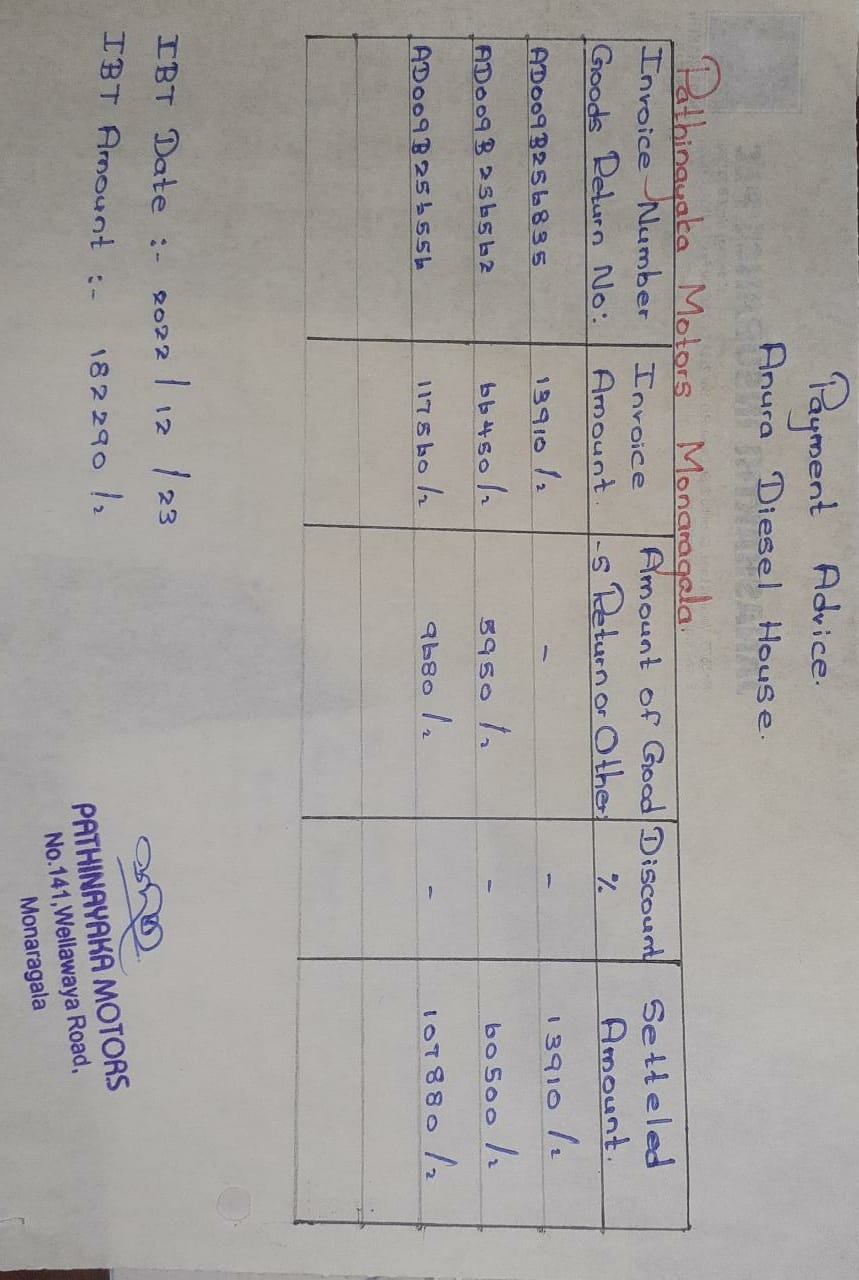 Payment Advice.
Anura Diesel House.
Pathinayaka Motors Monaragala.
Invoice Number Invoice Amount of Good Discount Setteled
Goods Return No: Amount. -s Return or Other % Amount.
AD009B256835 13910/= - - 13910/=
AD009B256562 66450/= 5950/= - 60500/=
AD009B256556 117560/= 9680/= - 107880/=
IBT Date :- 2022/12/23
IBT Amount :- 182290/=
PATHINAYAKA MOTORS
No.141, Wellawaya Road,
Monaragala